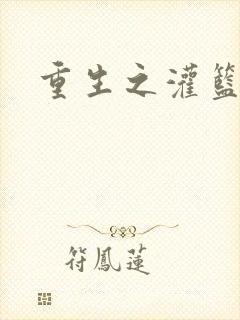 重生之灌籃
符鳳蓮